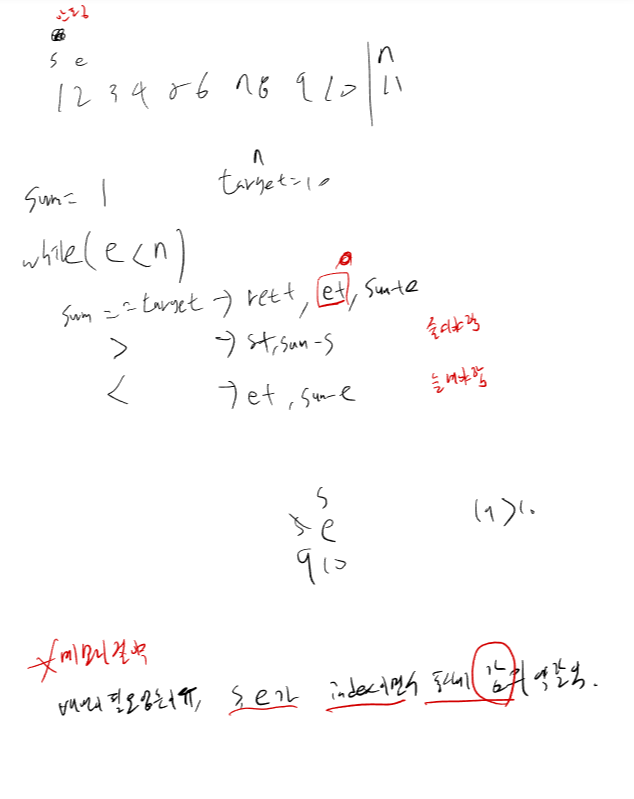 s e
1 2 3 4 5 6 7 8 9 10 | n 11
sum = 1 n target=10
while(e<n)
sum == target → ret+, e+, sum+e
> → s+, sum-s 줄여야함
< → e+, sum-e 늘려야함
s
s e 19>10
9 10
메모리 절약
배열이 필요없는 s, e가 index이면서 동시에 값의 역할도.